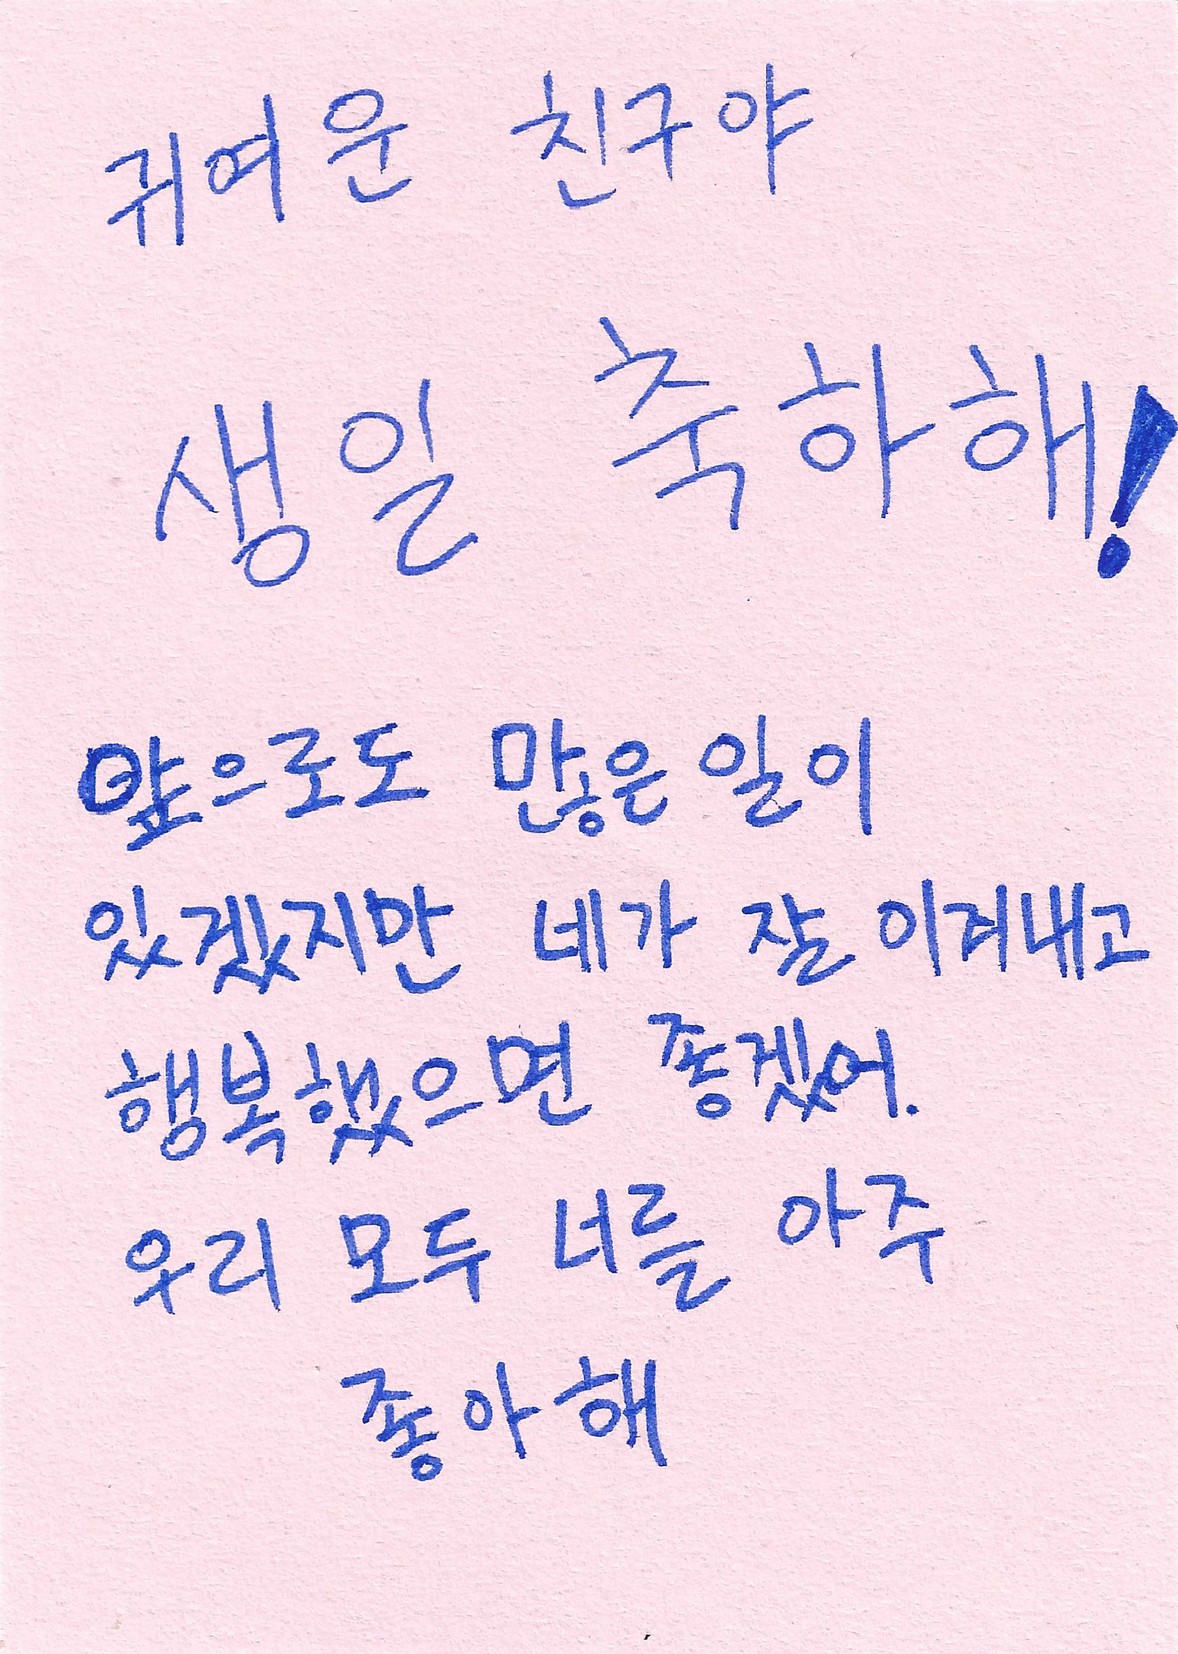 귀여운 친구야
생일 축하해!
앞으로도 많은 일이
있겠지만 네가 잘 이겨내고
행복했으면 좋겠어.
우리 모두 너를 아주
좋아해